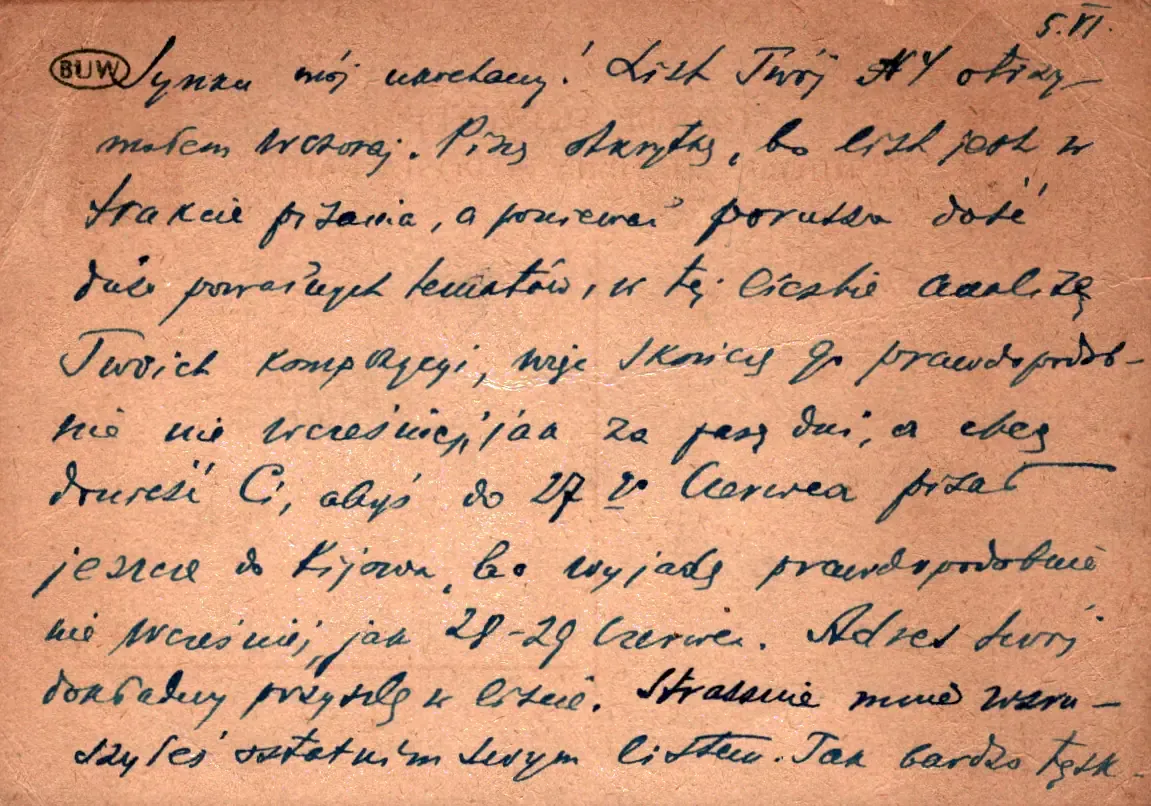 5.VI.
BUW
Synku mój ukochany! List Twój N 4 otrzy-
małem wczoraj. Piszę odkrytkę, bo list jest w
trakcie pisania, a ponieważ porusza dość
dużo poważnych tematów, w tej liczbie analizę
Twoich kompozycyi, więc skończę go prawdopodob-
nie nie wcześniej, jak za parę dni, a chcę
donieść Ci, abyś do 27 V Czerwca pisał
jeszcze do Kijowa, bo wyjadę prawdopodobnie
nie wcześniej, jak 28-29 Czerwca. Adres swój
dokładny przyszlę w liście. Strasznie mnie wzru-
szyłeś ostatnim swym listem. Tak bardzo tęsk-